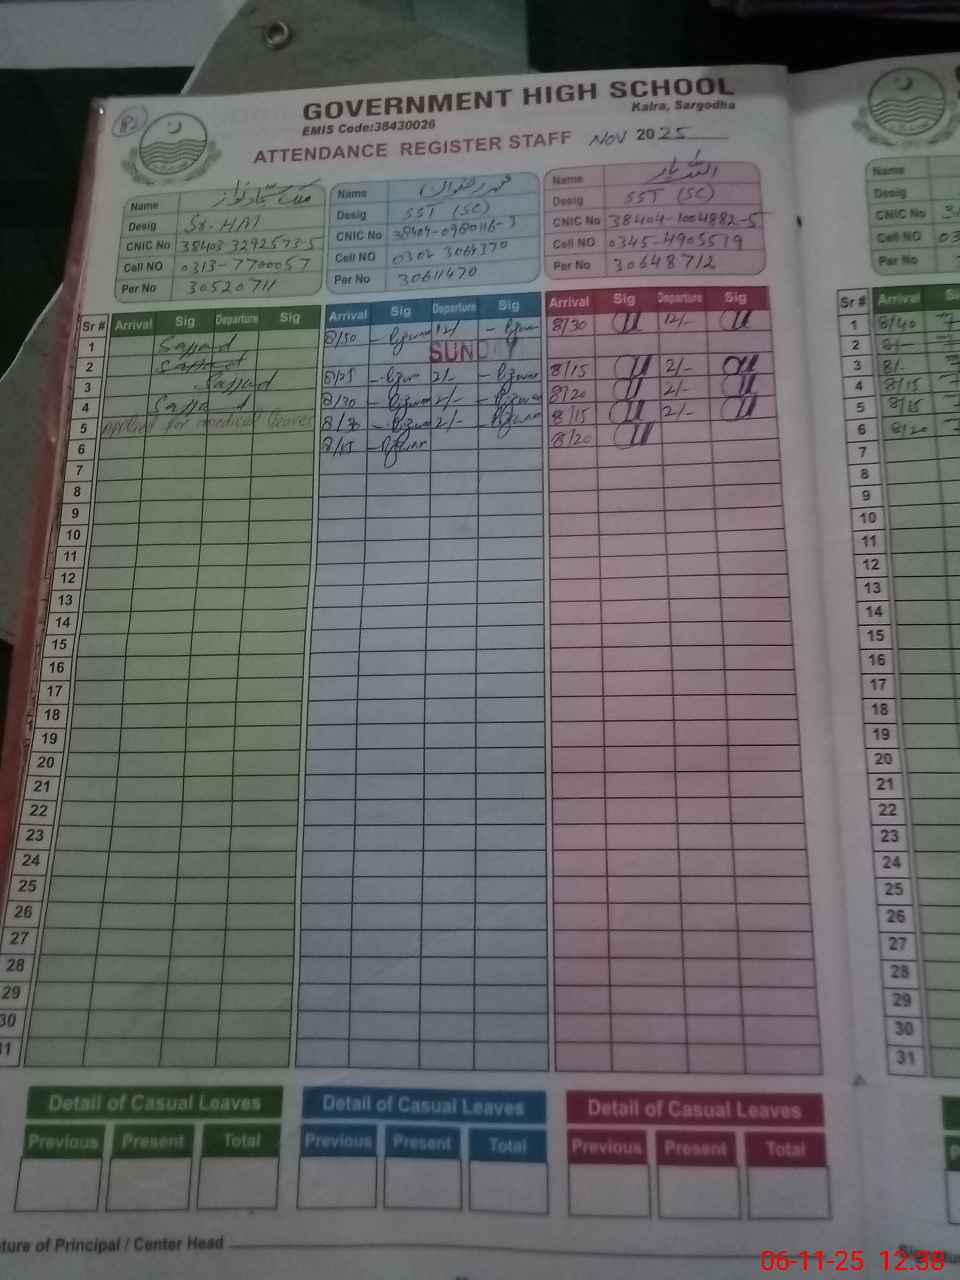 GOVERNMENT HIGH SCHOOL
Kalra, Sargodha
EMIS Code:38430026
ATTENDANCE REGISTER STAFF NOV 2025
Name ملک سجاد نواز
Desig
CNIC No 38403 3292573-5
Cell NO 0313-7700057
Per No 30520711
Name محمد رضوان
Desig SST (SC)
CNIC No 38404-0980116-3
Cell NO 0302 3064370
Per No 30611470
Name
Desig SST (SC)
CNIC No 38404-1004882-5
Cell NO 0345-4905519
Per No 30648712
Name
Desig
CNIC No
Cell NO 03
Per No
Sr # Arrival Sig Departure Sig Arrival Sig Departure Sig Arrival Sig Departure Sig
1 8/30 12/ 8/30 12/-
2 Sajjad SUNDAY
3 Sajjad 8/25 2/- 8/15 2/-
4 Sajjad 8/30 2/- 8/20 2/-
5 applied for medical leaves 8/30 2/- 8/15 2/-
6 8/15 8/20
7
8
9
10
11
12
13
14
15
16
17
18
19
20
21
22
23
24
25
26
27
28
29
30
31
Sr # Arrival
1 8/40
2
3 8/-
4 8/15
5 8/15
6 8/20
7
8
9
10
11
12
13
14
15
16
17
18
19
20
21
22
23
24
25
26
27
28
29
30
31
Detail of Casual Leaves
Previous Present Total
Detail of Casual Leaves
Previous Present Total
Detail of Casual Leaves
Previous Present Total
ture of Principal / Center Head
06-11-25 12:38